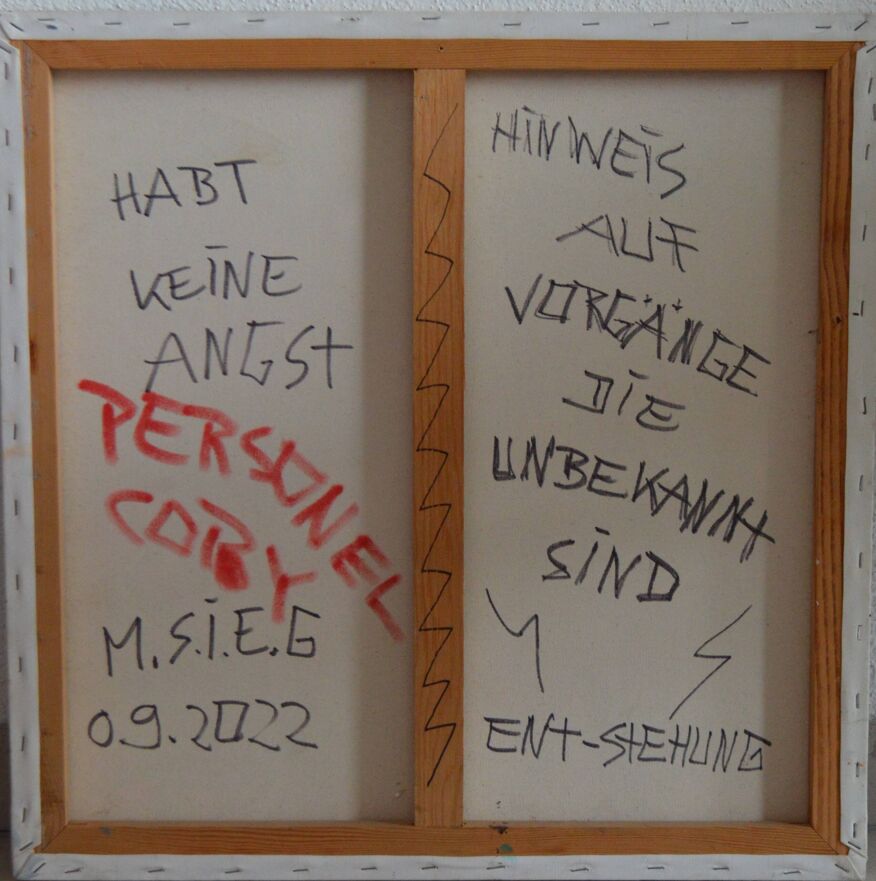 HABT
KEINE
ANGST
PERSONEL
COBY
M.S.I.E.G
09.2022
HINWEIS
AUF
VORGÄNGE
DIE
UNBEKANNT
SIND
ENT-STEHUNG